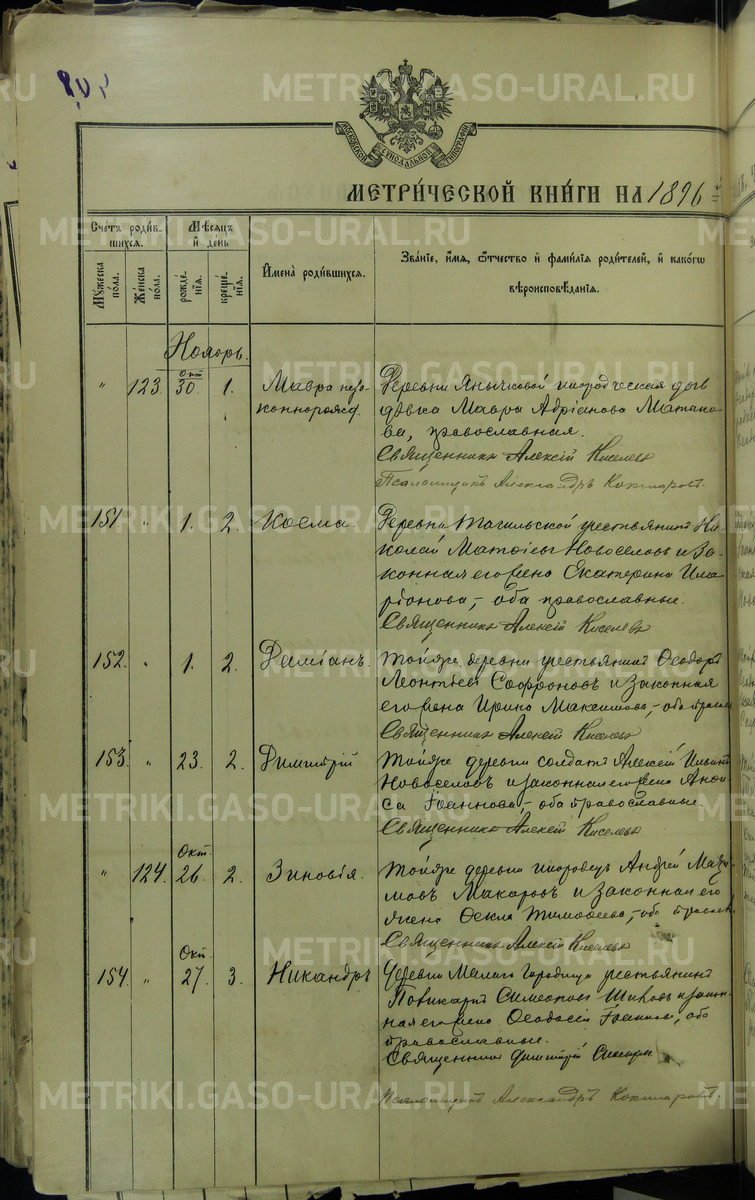 METRIKI.GASO-URAL.RU
МОСКОВСКОЙ СѴНОДАЛЬНОЙ ТИПОГРАФІИ
МЕТРИ́ЧЕСКОЙ КНИ́ГИ НА 1896
Сче́тъ роди́в-
шихся.
Мѣсяцъ
и҆ де́нь
И҆мена̀ роди́вшихся.
Зва́нїе, и҆́мя, ѻ҆́тчество и҆ фами́лїя роди́телей, и҆ како́гѡ
вѣроисповѣ́данїѧ.
Мꙋ́жеска по́ла.
Же́нска по́ла.
рожде́-нїѧ.
креще́-нїѧ.
Ноябрь.
" 123. Окт 30. 1. Мавра
Деревни Янычковой инородческая дочь
дѣвка Мавра Адріанова Матано-
ва, православная.
Священникъ Алексій Киселевъ
Псаломщикъ Александръ Кокшаровъ.
151. " 1. 2. Косма.
Деревни Тагильской крестьянинъ Ни-
колай Матѳіевъ Новоселовъ и за-
конная его жена Екатерина Ила-
ріонова, – оба православные.
Священникъ Алексій Киселевъ
152. " 1. 2. Даміанъ.
Тойже деревни крестьянинъ Ѳеодоръ
Леонтіевъ Софроновъ и законная
его жена Ирина Максимова, – оба
Священникъ Алексій Киселевъ
153. " 23. 2. Димитрій
Тойже деревни солдатъ Алексій
Новоселовъ и законная его жена Анѳи-
са Іоаннова – оба православные.
Священникъ Алексій Киселевъ
" 124. Окт. 26. 2. Зиновія.
Тойже деревни инородецъ Андрей
Макаровъ и законная его
жена Ѳекла Тимоѳеева, – оба
Священникъ Алексій Киселевъ
154. " Окт. 27. 3. Никандръ
Деревни Малаго Городища крестьянинъ
Поликарпъ Симеоновъ и закон-
ная его жена Ѳеодосія Іоаннова, оба
православные.
Священникъ Димитрій
Псаломщикъ Александръ Кокшаровъ.